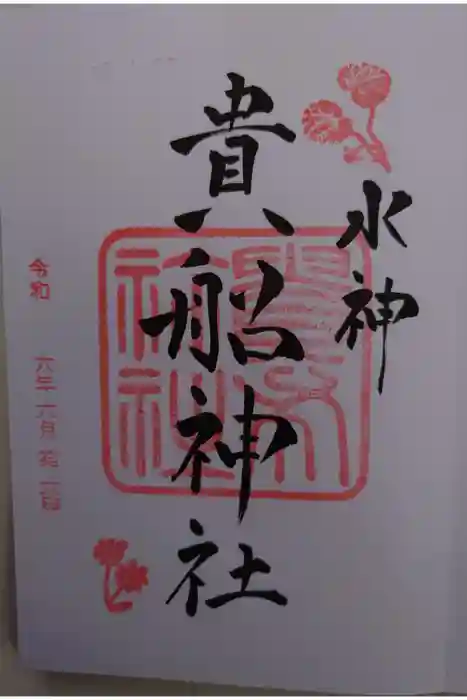 水神
貴船神社
令和 六年 六月